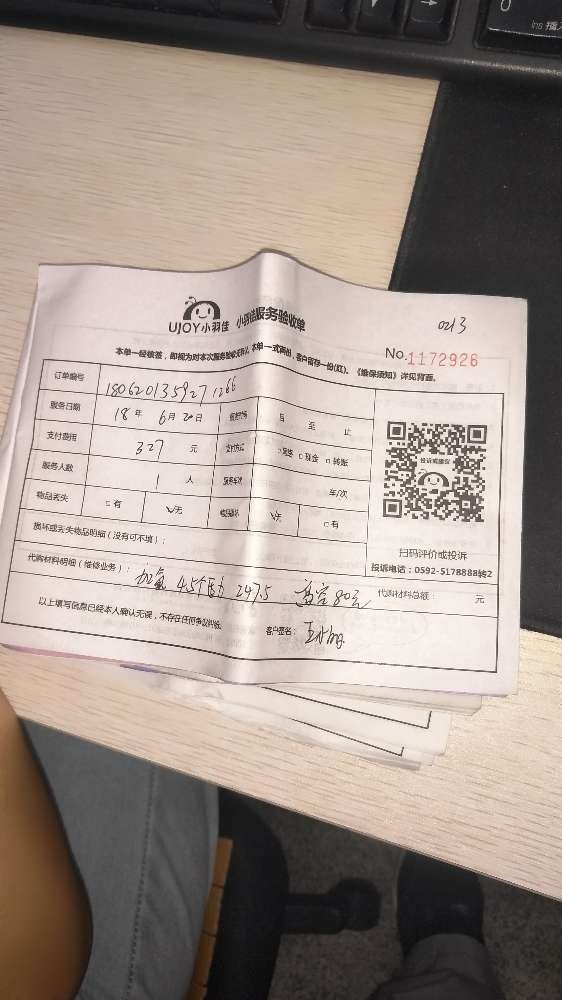 Ins 插入
0
UJOY小羽佳 小羽佳服务验收单
0213
本单一经核签，即视为对本次服务验收完成确认，本单一式两出，客户留存一份(红)。《维保须知》详见背面。
No.1172926
订单编号 1806201359271266
服务日期 18年 6月20日 至 止
支付费用 327 元 支付方式 □现金 □转账
服务人数 1 人 服务车次 车/次
物品丢失 □有 ☑无 物品损坏 ☑无 □有
投诉或建议
扫码评价或投诉
投诉电话：0592-5178888转2
损坏或丢失物品明细（没有可不填）：
代购材料明细（维修业务）： 加氟 4.5个压力 247.5 高空80元 代购材料总额： 元
以上填写信息已经本人确认无误，不存在任何争议纠纷。 客户签名：